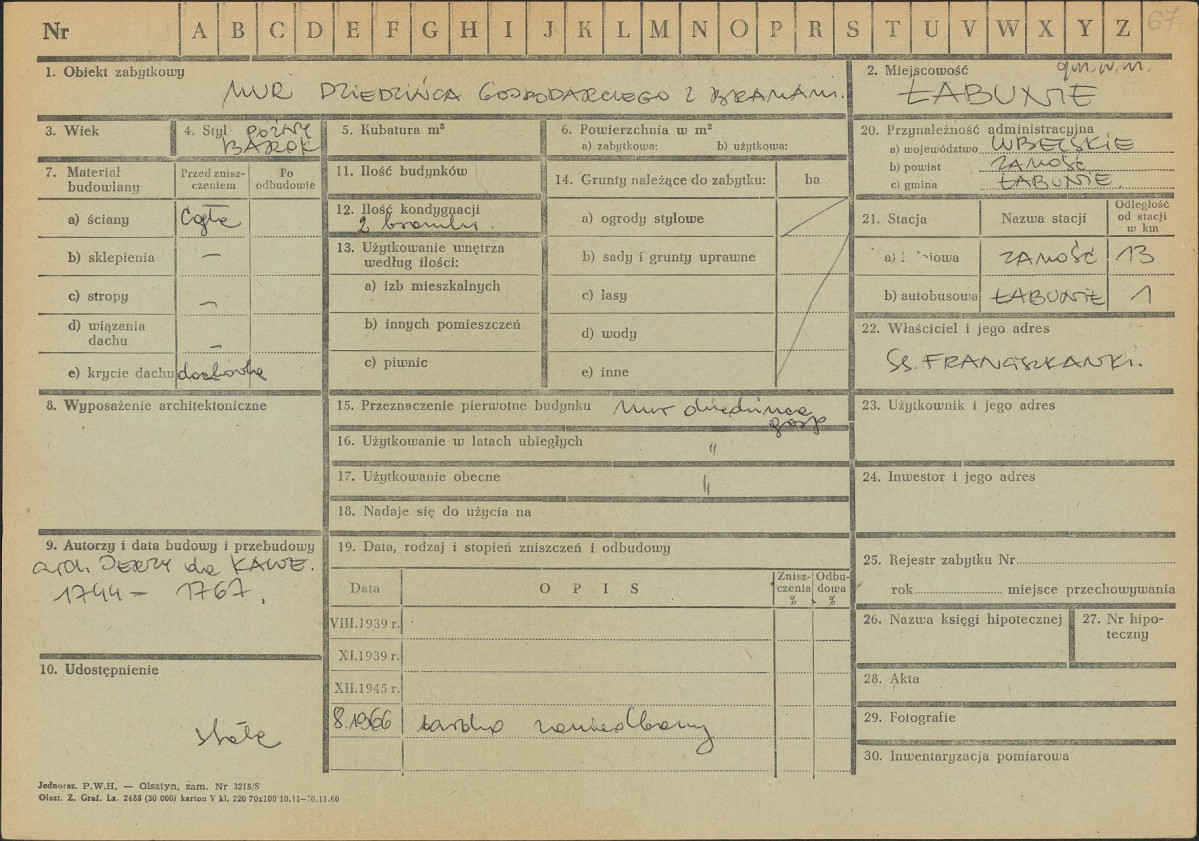 Nr A B C D E F G H I J K L M N O P R S T U V W X Y Z 67
1. Obiekt zabytkowy
MUR DZIEDZIŃCA GOSPODARCZEGO Z BRAMAMI.
2. Miejscowość
gm. w m.
ŁABUNIE
3. Wiek
4. Styl PÓŹNY
BAROK
5. Kubatura m³
6. Powierzchnia w m²
a) zabytkowa: b) użytkowa:
20. Przynależność administracyjna
a) województwo LUBELSKIE
b) powiat ZAMOŚĆ
c) gmina ŁABUNIE
7. Materiał budowlany
Przed zniszczeniem
Po odbudowie
a) ściany Cegła
b) sklepienia —
c) stropy —
d) wiązania dachu —
e) krycie dachu dachówka
11. Ilość budynków
12. Ilość kondygnacji
2 bramki.
13. Użytkowanie wnętrza
według ilości:
a) izb mieszkalnych
b) innych pomieszczeń
c) piwnic
14. Grunty należące do zabytku: ha
a) ogrody stylowe
b) sady i grunty uprawne
c) lasy
d) wody
e) inne
21. Stacja Nazwa stacji Odległość od stacji w km
ZAMOŚĆ 13
b) autobusowa ŁABUNIE 1
22. Właściciel i jego adres
SS. FRANCISZKANKI.
8. Wyposażenie architektoniczne
15. Przeznaczenie pierwotne budynku mur dziedzińca
gosp
16. Użytkowanie w latach ubiegłych "
17. Użytkowanie obecne "
18. Nadaje się do użycia na
23. Użytkownik i jego adres
24. Inwestor i jego adres
9. Autorzy i data budowy i przebudowy
arch. JERZY de KAWE.
1744 – 1767.
19. Data, rodzaj i stopień zniszczeń i odbudowy
Data O P I S Zniszczenia % Odbudowa %
VIII.1939 r.
XI.1939 r.
XII.1945 r.
8.1966 bardzo zaniedbany
10. Udostępnienie
stałe
25. Rejestr zabytku Nr
rok miejsce przechowywania
26. Nazwa księgi hipotecznej
27. Nr hipoteczny
28. Akta
29. Fotografie
30. Inwentaryzacja pomiarowa
Jednoraz. P.W.H. — Olsztyn, zam. Nr 3215/S
Olszt. Z. Graf. Lz. 2485 (30 000) karton V kl. 220 70x100 10.11—30.11.60